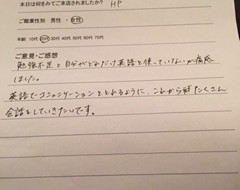 本日は何をみてご来店されましたか? HP
ご職業性別 男性・女性
年齢 10代 20代 30代 40代 50代 60代 70代
ご意見・ご感想
勉強不足と自分がどれだけ英語を使っていないか痛感
しました。
英語でコミュニケーションをとれるように、これから またたくさん
会話をしていきたいです。